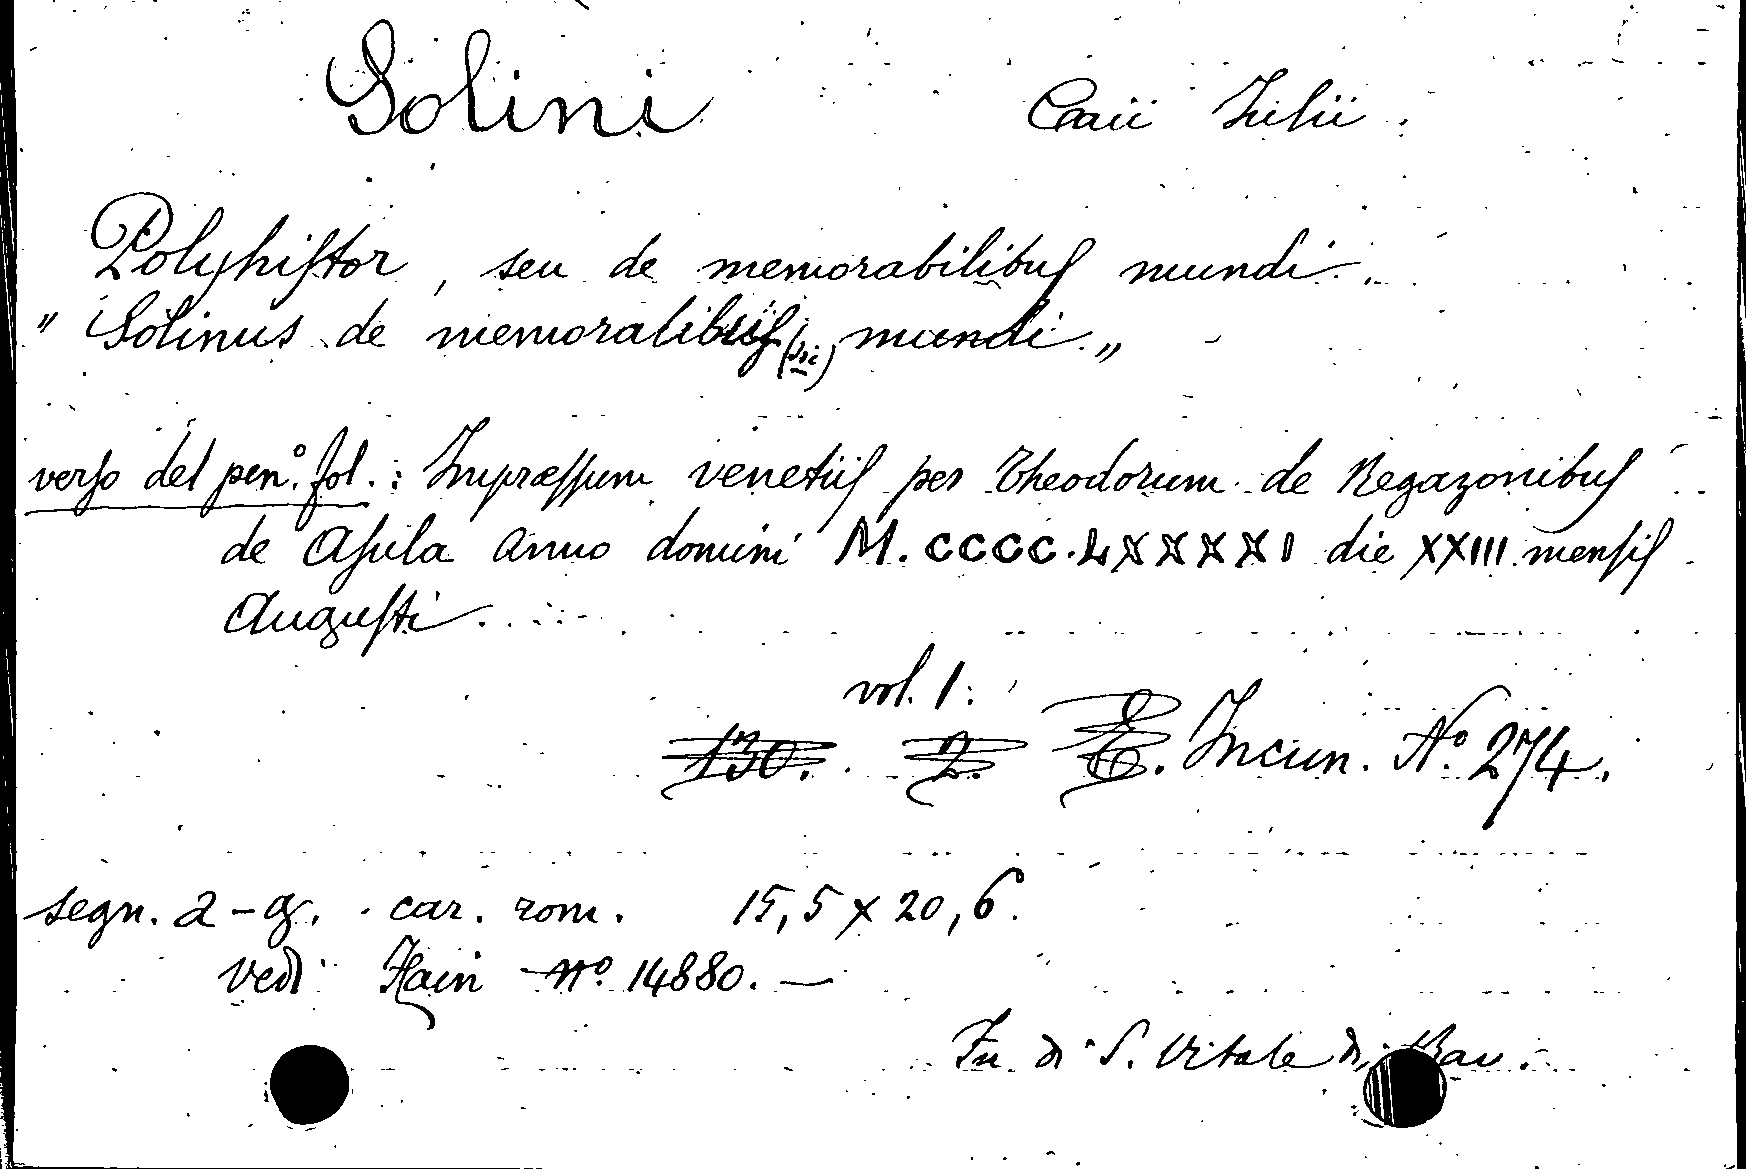 Solini Caii Iulii.
Polyhiſtor, seu de memorabilibuſ mundi.
" Solinus de memoralibuſ (sic) mundi. "
verſo del pen.° fol.: Impreſſum venetiiſ per Theodorum de Regazonibuſ
de Aſula anno domini M.CCCC.LXXXXI die XXIII menſiſ
Auguſti.
vol. 1.
130. 2. E. Incun. N.° 274.
segn. a-g. car. rom. 15,5 x 20,6.
vedi Hain N.° 14880. —
Fu di S. Vitale di Rav.